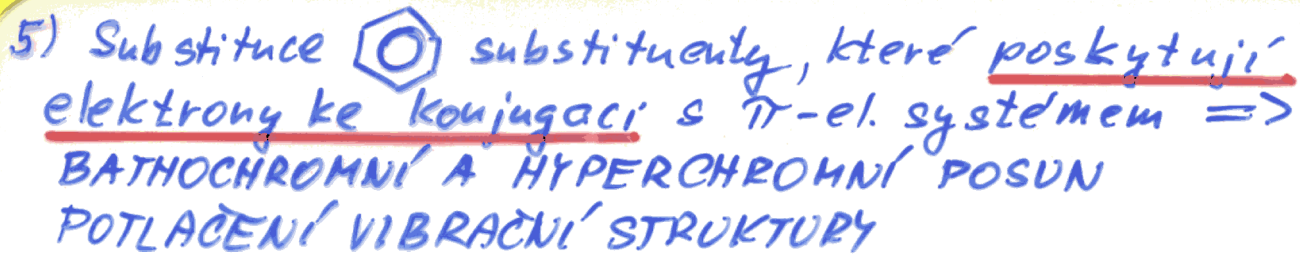 5) Substituce substituenty, které poskytují
elektrony ke konjugaci s π-el. systémem =>
BATHOCHROMNÍ A HYPERCHROMNÍ POSUN
POTLAČENÍ VIBRAČNÍ STRUKTURY